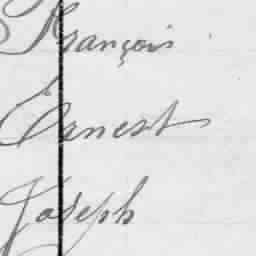 François
Ernest
Joseph